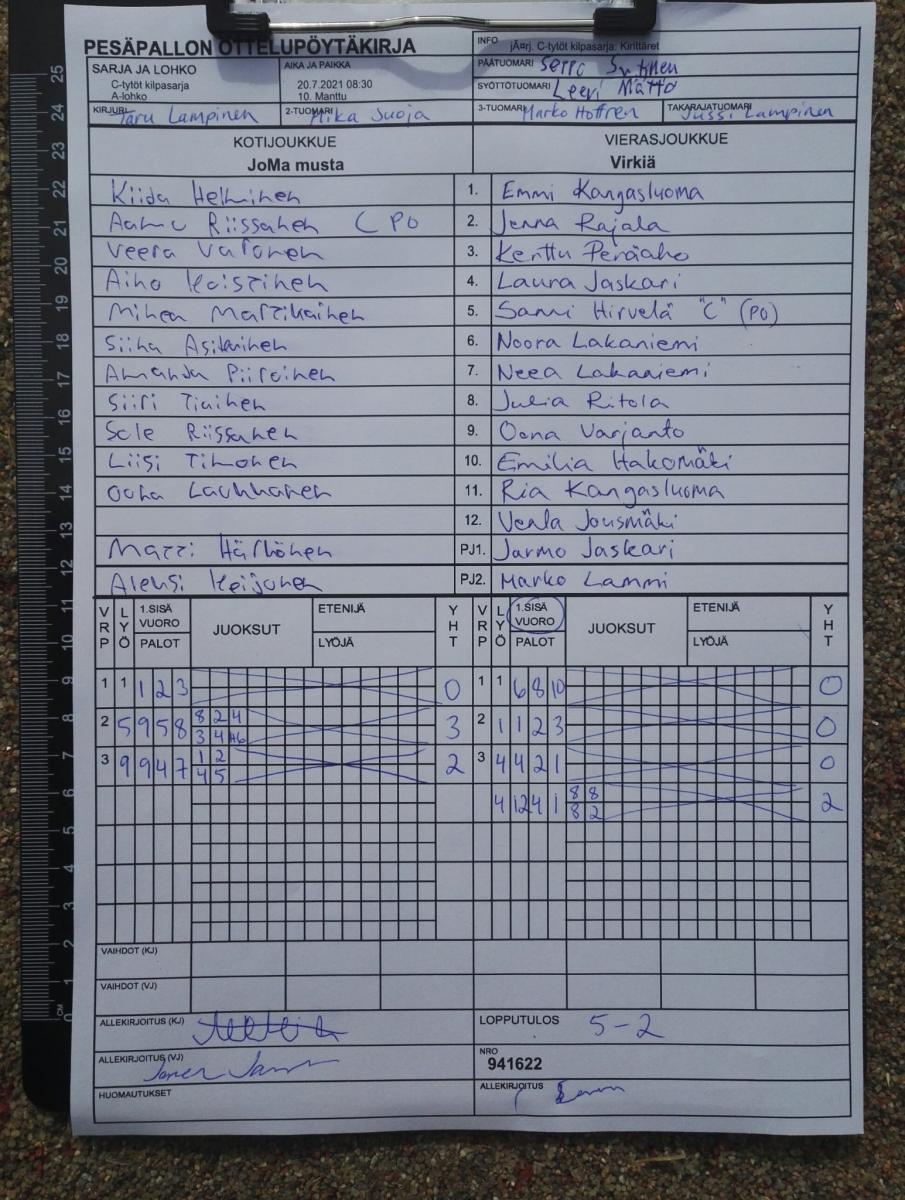 PESÄPALLON OTTELUPÖYTÄKIRJA
INFO jÃ¤rj. C-tytöt kilpasarja: Kirittäret
SARJA JA LOHKO
C-tytöt kilpasarja
A-lohko
AIKA JA PAIKKA
20.7.2021 08:30
10. Manttu
PÄÄTUOMARI Seppo
SYÖTTÖTUOMARI Leevi Mättö
KIRJURI Taru Lampinen
2-TUOMARI Mika Suoja
3-TUOMARI Marko Hoffren
TAKARAJATUOMARI Jussi Lampinen
KOTIJOUKKUE
JoMa musta
VIERASJOUKKUE
Virkiä
Kiida Helminen 1. Emmi Kangasluoma
Aamu Riissanen C PO 2. Jenna Rajala
Veera Varonen 3. Kerttu Peräaho
Aino Koistinen 4. Laura Jaskari
Minea Martikainen 5. Sanni Hirvelä "C" (PO)
Siina Asikainen 6. Noora Lakaniemi
Amanda Piiroinen 7. Neea Lakaniemi
Siiri Tiainen 8. Julia Ritola
Sole Riissanen 9. Oona Varjanto
Liisi Timonen 10. Emilia Hakomäki
Oona Laukkanen 11. Ria Kangasluoma
12. Venla Jousmäki
Matti Härkönen PJ1. Jarmo Jaskari
Aleksi Keijonen PJ2. Marko Lammi
VRP LYÖ 1.SISÄ VUORO PALOT JUOKSUT ETENIJÄ LYÖJÄ YHT VRP LYÖ 1.SISÄ VUORO PALOT JUOKSUT ETENIJÄ LYÖJÄ YHT
1 1 1 2 3 0 1 1 6 8 10 0
2 5 9 5 8 8 2 4 3 2 1 1 2 3 0
3 4
3 9 9 4 7 1 2 2 3 4 4 2 1 0
4 5
4 12 4 1 8 8 2
8 2
VAIHDOT (KJ)
VAIHDOT (VJ)
ALLEKIRJOITUS (KJ)
LOPPUTULOS 5-2
ALLEKIRJOITUS (VJ)
NRO
941622
HUOMAUTUKSET
ALLEKIRJOITUS
25
24
23
22
21
20
19
18
17
16
15
14
13
12
11
10
9
8
7
6
5
4
3
2
1
0
CM